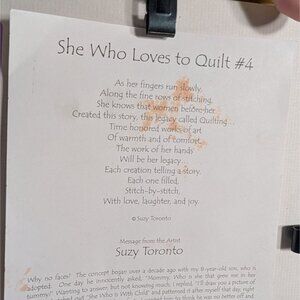 She Who Loves to Quilt #4
As her fingers run slowly,
Along the fine rows of stitching,
She knows that women before her...
Created this story, this legacy called Quilting...
Time honored work of art
Of warmth and of comfort.
The work of her hands
Will be her legacy...
Each creation telling a story,
Each one filled,
Stitch-by-stitch,
With love, laughter, and joy.
© Suzy Toronto
Message from the Artist
Suzy Toronto
Why no faces? The concept began over a decade ago with my 8-year-old son, who is
adopted. One day he innocently asked, "Mommy, Who is she that grew me in her
tummy? Wanting to answer, but not knowing much, I replied, "I'll draw you a picture of
and "She Who is With Child" and patterned it after myself that day, right